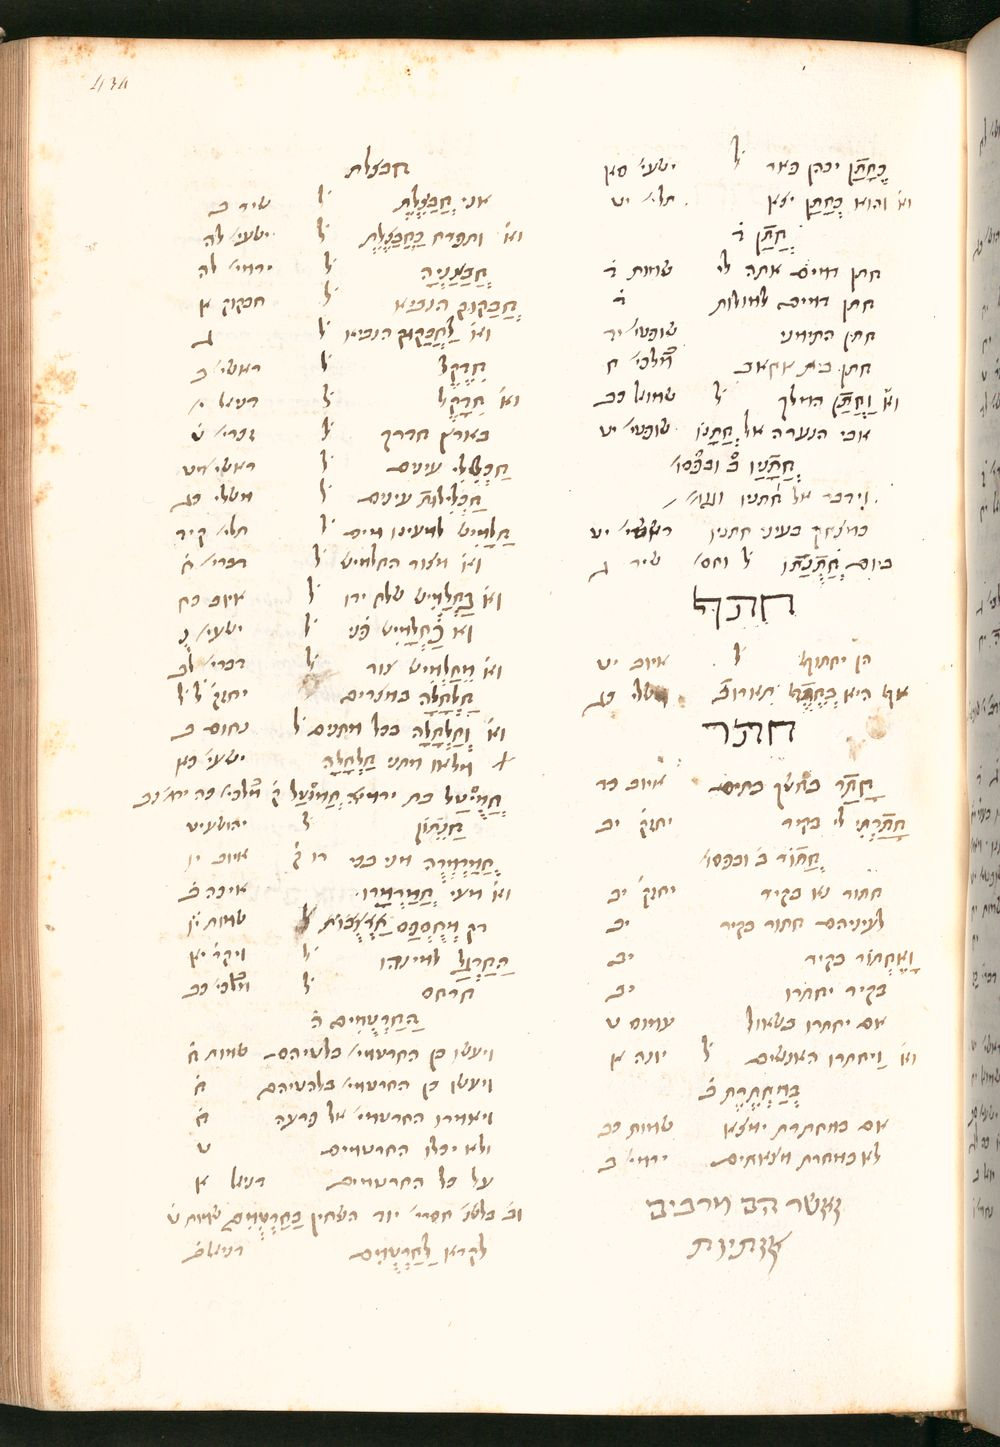 434
כֶּחָתָן יכהן פאר ל ישעי׳ סא
וא׳ והוא כְּחָתָן יצא תלי׳ יט
חֲתַן ד׳
חתן דמים אתה לי שמות ד׳
חתן דמים למולות ד׳
חתן התימני שופטי׳ יד
חתן בית אחאב מ״לכי׳ ח
וא׳ וַחֲתַן המלך ל שמואל כב
אבי הנערה אל חֲתָנוֹ שופטי׳ יט
חֲתָנָיו ב׳ ובפסו׳
וידבר אל חתניו וגו׳
כמצחק בעיני חתניו ראשי׳ יט
ביום חֲתֻנָּתוֹ ל וחס׳ שיר ג
חתף
הן יחתוף ל איוב ט
אף היא כְּחֶתֶף תארוב משלי כג
חתר
חָתַר בחשך בתים איוב כד
חָתַרְתִּי לי בקיר יחזק׳ יב
חֲתוֹר ב׳ ובפסו׳
חתור נא בקיר יחזק׳ יב
לעיניהם חתור בקיר יב
וָאֶחְתּוֹר בקיר יב
בקיר יחתרו יב
אם יחתרו בשאול עמוס ט
וא׳ וַיחתרו האנשים ל יונה א
בַּמַּחְתֶּרֶת ב׳
אם במחתרת ימצא שמות כב
לא במחתרת מצאתים ירמי׳ ב
ואשר הם מרבים
אותיות
חבצלת
אני חֲבַצֶּלֶת ל שיר ב
וא׳ ותפרח כַּחֲבַצָּלֶת ל ישעי׳ לה
חֲבַצִּנְיָה ל ירמי׳ לה
חֲבַקּוּק הנביא ל חבקוק א
וא׳ לַחֲבַקּוּק הנביא ל ג
חִדֶּקֶל ל ראשי׳ ב
וא׳ חִדָּקֶל ל דניאל י׳
בארץ חדרך ל זכרי׳ ט
חַכְלִילִי עינים ל ראשי׳ מט
חַכְלִילוּת עינים ל משלי כג
חַלָּמִישׁ למעינו מים ל תלי׳ קיד
וא׳ מצור החלמיש ל דברי׳ ח
וא׳ בַּחַלָּמִישׁ שלח ידו ל איוב כח
וא׳ כַּחַלָּמִישׁ פני ל ישעי׳ נ
וא׳ מֵחַלְמִישׁ צור ל דברי׳ לב
חַלְחָלָה במצרים יחזק׳ ל ל
וא׳ וְחַלְחָלָה בכל מתנים ל נחום ב
מלאו מתני חַלְחָלָה ישעי׳ כא
חֲמִיטַל בת ירמיה חֲמוּטַל ק׳ מ״לכי׳ כה ירמי׳ נב
חַנָּתוֹן ל יהושע יט
חֳמַרְמְרֻה מני בכי רו ק׳ איוב יו
וא׳ מעי חֳמַרְמָרוּ איכה ב׳
דק מְחֻסְפָּס ל שמות יו
הַחַרְגֹּל למינהו ל ויקר׳ יא
חרחס ל מ״לכי׳ כב
הַחַרְטֻמִּים ה׳
ויעשו כן החרטמי׳ בלטיהם שמות ח׳
ויעשו כן החרטמי׳ בלהטיהם ח׳
ויאמרו החרטמי׳ אל פרעה ח׳
ולא יכלו החרטמים ט
על כל החרטמים דניאל א
וב׳ בלשנ׳ חסרי׳ יוד השחין בַּחַרְטֻמִּים שמות ט׳
לקרא לַחַרְטֻמִּים דניאל ב׳